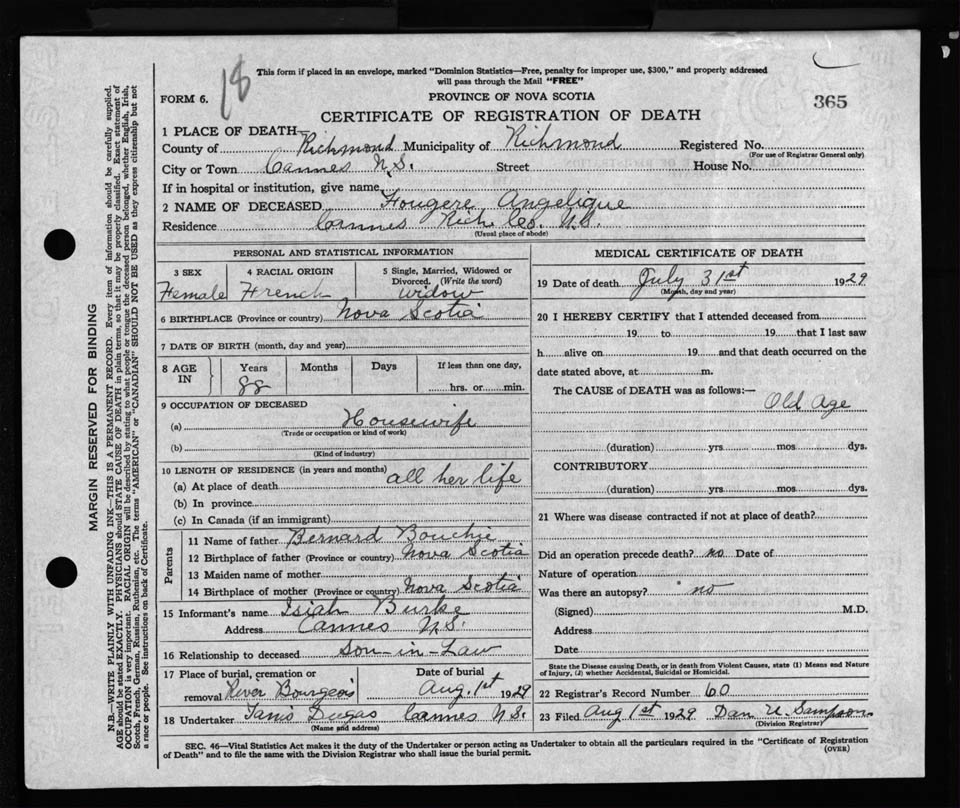 18
This form if placed in an envelope, marked "Dominion Statistics—Free, penalty for improper use, $300," and properly addressed
will pass through the Mail "FREE"
FORM 6.
PROVINCE OF NOVA SCOTIA
365
CERTIFICATE OF REGISTRATION OF DEATH
1 PLACE OF DEATH—
County of Richmond Municipality of Richmond Registered No.
(For use of Registrar General only)
City or Town Cannes N.S. Street House No.
If in hospital or institution, give name
2 NAME OF DECEASED Fougere Angelique
Residence Cannes Rich Co. N.S.
(Usual place of abode)
PERSONAL AND STATISTICAL INFORMATION
3 SEX 4 RACIAL ORIGIN 5 Single, Married, Widowed or
Divorced. (Write the word)
Female French Widow
6 BIRTHPLACE (Province or country) Nova Scotia
7 DATE OF BIRTH (month, day and year)
8 AGE IN Years Months Days If less than one day,
88 hrs. or min.
9 OCCUPATION OF DECEASED
(a) Housewife
(Trade or occupation or kind of work)
(b)
(Kind of industry)
10 LENGTH OF RESIDENCE (in years and months)
(a) At place of death all her life
(b) In province
(c) In Canada (if an immigrant)
Parents
11 Name of father Bernard Bouchie
12 Birthplace of father (Province or country) Nova Scotia
13 Maiden name of mother
14 Birthplace of mother (Province or country) Nova Scotia
15 Informant's name Isiah Burke
Address Cannes N.S.
16 Relationship to deceased Son-in-Law
17 Place of burial, cremation or Date of burial
removal River Bourgeois Aug. 1st 1929
18 Undertaker Dugas Cannes N.S.
(Name and address)
MEDICAL CERTIFICATE OF DEATH
19 Date of death July 31st 1929
(Month, day and year)
20 I HEREBY CERTIFY that I attended deceased from
19 to 19 that I last saw
h alive on 19 and that death occurred on the
date stated above, at m.
The CAUSE of DEATH was as follows:—
Old Age
(duration) yrs. mos. dys.
CONTRIBUTORY
(duration) yrs. mos. dys.
21 Where was disease contracted if not at place of death?
Did an operation precede death? no Date of
Nature of operation
Was there an autopsy? no
(Signed) M.D.
Address
Date
State the Disease causing Death, or in death from Violent Causes, state (1) Means and Nature
of Injury, (2) whether Accidental, Suicidal or Homicidal.
22 Registrar's Record Number 60
23 Filed Aug 1st 1929 Dan U. Sampson
(Division Registrar)
SEC. 46—Vital Statistics Act makes it the duty of the Undertaker or person acting as Undertaker to obtain all the particulars required in the "Certificate of Registration
of Death" and to file the same with the Division Registrar who shall issue the burial permit.
(OVER)
MARGIN RESERVED FOR BINDING
N.B.—WRITE PLAINLY WITH UNFADING INK—THIS IS A PERMANENT RECORD. Every item of information should be carefully supplied.
AGE should be stated EXACTLY. PHYSICIANS should STATE CAUSE OF DEATH in plain terms, so that it may be properly classified. Exact statement of
OCCUPATION is very important. RACIAL ORIGIN will be described by stating to what people or tongue the deceased person belonged, whether English, Irish,
Scotch, French, German, Russian, Ruthenian, etc. The terms "AMERICAN" or "CANADIAN" SHOULD NOT BE USED as they express citizenship but not
a race or people. See instructions on back of Certificate.